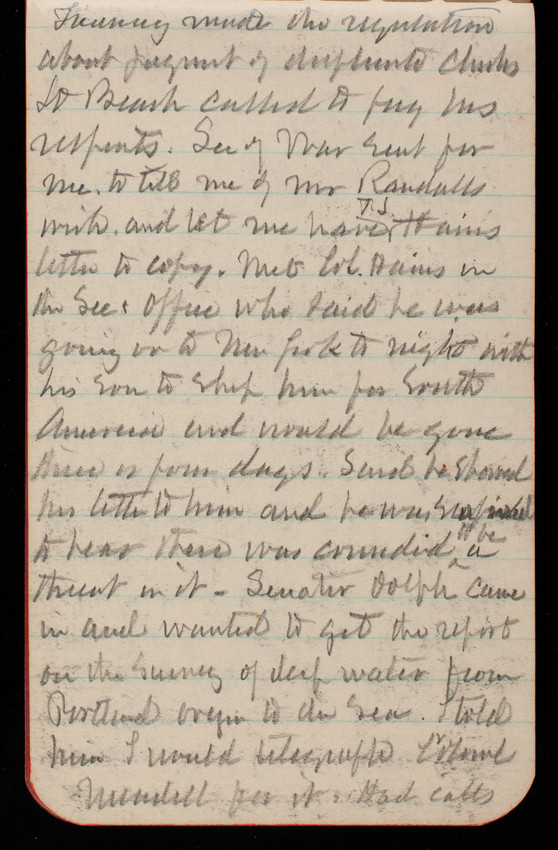 Treasury made the regulation
about payment of duplicate checks
Lt Beach called to pay his
respects. Sec of War sent for
me. to tell me of Mr Randalls
wish. and let me have T. J. Hains
letter to copy. Met Col. Hains in
the Secs office who said he was
going on to New York to night with
his son to ship him for South
America and would be gone
three or four days. Said he showed
his letter to him and he was surprised
to hear there was considd to be a
threat in it - Senator Dolph came
in and wanted to get the report
on the survey of deep water from
Portland oregon to the Sea. I told
him I would telegraph Colonel
Mendell for it. Had calls